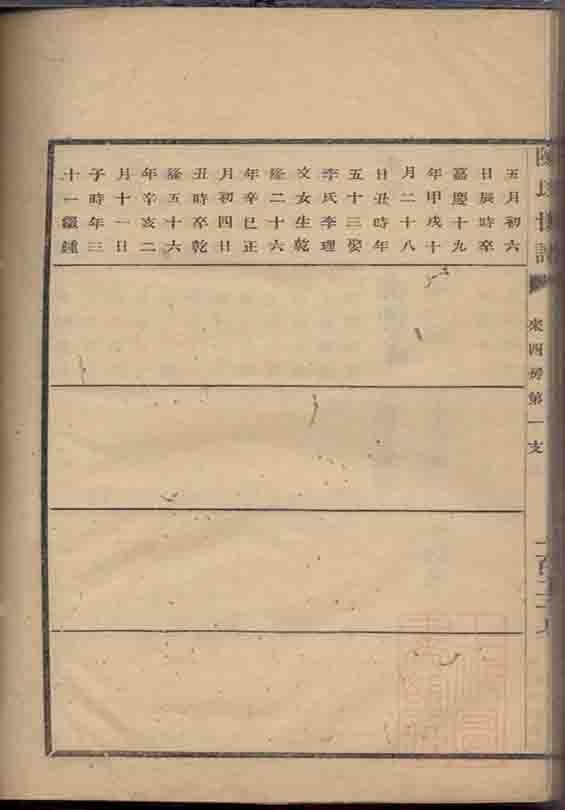 來四房第一支
五月初六
日辰時卒
嘉慶十九
年甲戌十
月二十八
日丑時年
五十三娶
李氏李理
文女生乾
隆二十六
年辛巳正
月初四日
丑時卒乾
隆五十六
年辛亥二
月十一日
子時年三
十一繼鍾